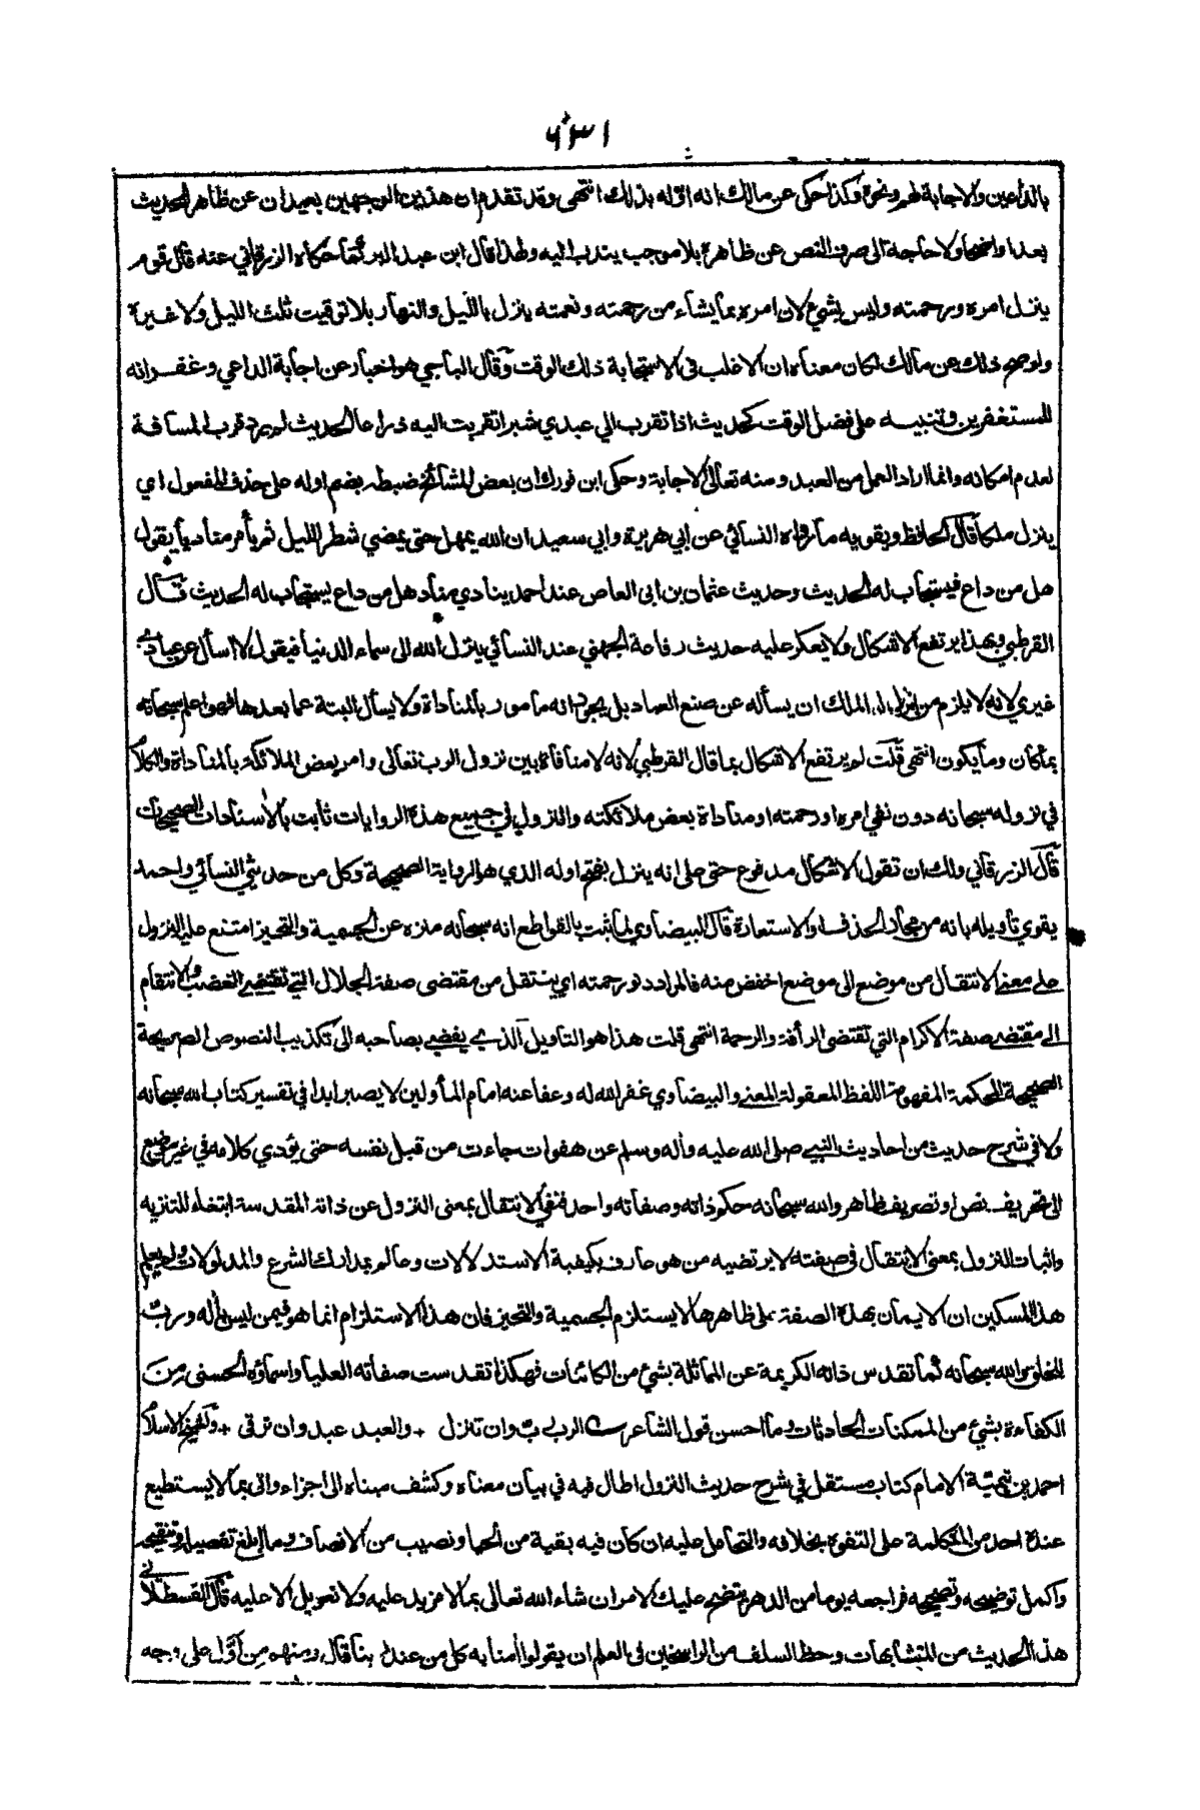 بالداعين والاجابة لهم ونحوه وكذا حكى عن مالك انه اوله بذلك انتهى وقد تقدم ان هذين الوجهين بعيدان عن ظاهر الحديث
بعدا واضحا ولا حاجة الى صرف النص عن ظاهره بلا موجب يندب اليه ولهذا قال ابن عبد البر كما حكاه الزرقاني عنه قال قوم
ينزل امره ورحمته وليس بشيء لان امره بما يشاء من رحمته ونعمته ينزل بالليل والنهار بلا توقيت ثلث الليل ولا غيره
ولو صح ذلك عن مالك لكان معناه ان الاغلب في الاستجابة ذلك الوقت وقال الباجي هو اخبار عن اجابة الداعي وغفرانه
للمستغفرين وتنبيه على فضل الوقت كحديث اذا تقرب الي عبدي شبرا تقربت اليه ذراعا الحديث لم يرد قرب المسافة
لعدم امكانه وانما اراد العمل من العبد ومنه تعالى الاجابة وحكى ابن فورك ان بعض المشائخ ضبطه بضم اوله على حذف المفعول اي
ينزل ملكا قال الحافظ ويقويه ما رواه النسائي عن ابي هريرة وابي سعيد ان الله يمهل حتى يمضي شطر الليل ثم يأمر مناديا يقول
هل من داع فيستجاب له الحديث وحديث عثمان بن ابى العاص عند احمد ينادي مناد هل من داع يستجاب له الحديث قال
القرطبي وبهذا يرتفع الاشكال ولا يعكر عليه حديث رفاعة الجهني عند النسائي ينزل الله الى سماء الدنيا فيقول لا اسأل عن عبادي
غيري لانه لا يلزم من انزاله الملك ان يسأله عن صنع العباد بل يجوز انه مأمور بالمناداة ولا يسأل البتة عما بعدها فهو اعلم سبحانه
بما كان وما يكون انتهى قلت لم يرتفع الاشكال بما قال القرطبي لانه لا منافاة بين نزول الرب تعالى وامر بعض الملائكة بالمناداة والكلام
في نزوله سبحانه دون نفي امره او رحمته او مناداة بعض ملائكته والنزول في جميع هذه الروايات ثابت بالاسنادات الصحيحات
قال الزرقاني ولك ان تقول الاشكال مدفوع حتى على انه ينزل بفتح اوله الذي هو الرواية الصحيحة وكل من حديثي النسائي واحمد
يقوي تاويله بانه من مجاز الحذف او الاستعارة قال البيضاوي لما ثبت بالقواطع انه سبحانه منزه عن الجسمية والتحيز امتنع عليه النزول
على معنى الانتقال من موضع الى موضع اخفض منه فالمراد دنو رحمته اي ينتقل من مقتضى صفة الجلال التي تقتضي الغضب والانتقام
الى مقتضى صفة الاكرام التي تقتضى الرأفة والرحمة انتهى قلت هذا هو التاويل الذي يفضي بصاحبه الى تكذيب النصوص الصريحة
الصحيحة المحكمة المفهومة اللفظ المعقولة المعنى والبيضاوي غفر الله له وعفا عنه امام المأولين لا يصبر ابدا في تفسير كتاب الله سبحانه
ولا في شرح حديث من احاديث النبي صلى الله عليه وآله وسلم عن هفوات جاءت من قبل نفسه حتى يؤدي كلامه في غير موضع
الى تحريف نص او تصريف ظاهر والله سبحانه حكم ذاته وصفاته واحد فنفي الانتقال بمعنى النزول عن ذاته المقدسة ابتغاء للتنزيه
واثبات النزول بمعنى الانتقال في صفته لا يرتضيه من هو عارف بكيفية الاستدلالات وعالم بمدارك الشرع والمدلولات ولم يعلم
هذا المسكين ان الايمان بهذه الصفة على ظاهرها لا يستلزم الجسمية والتحيز فان هذا الاستلزام انما هو فيمن ليس بآله ورب
للخلق والله سبحانه كما تقدس ذاته الكريمة عن المماثلة بشيء من الكائنات فهكذا تقدست صفاته العليا واسماؤه الحسنى من
الكفاءة بشيء من الممكنات الحادثات وما احسن قول الشاعر الرب رب وان تنزل + والعبد عبد وان ترقى + ولشيخ الاسلام
احمد بن تيمية الامام كتاب مستقل في شرح حديث النزول اطال فيه في بيان معناه وكشف مبناه الى اجزاء واتى بما لا يستطيع
عنده احد من المتكلمة على التفوه بخلافه والتحامل عليه ان كان فيه بقية من الحيا ونصيب من الانصاف وما ابلغ تفصيله وتنقيحه
واكمل توضيحه وتصحيحه فراجعه يوما من الدهر يتضح عليك الامر ان شاء الله تعالى بما لا مزيد عليه ولا تعويل الا عليه قال القسطلاني
هذا الحديث من المتشابهات وحظ السلف من الراسخين في العلم ان يقولوا آمنا به كل من عند ربنا قال ومنهم من اول على وجه